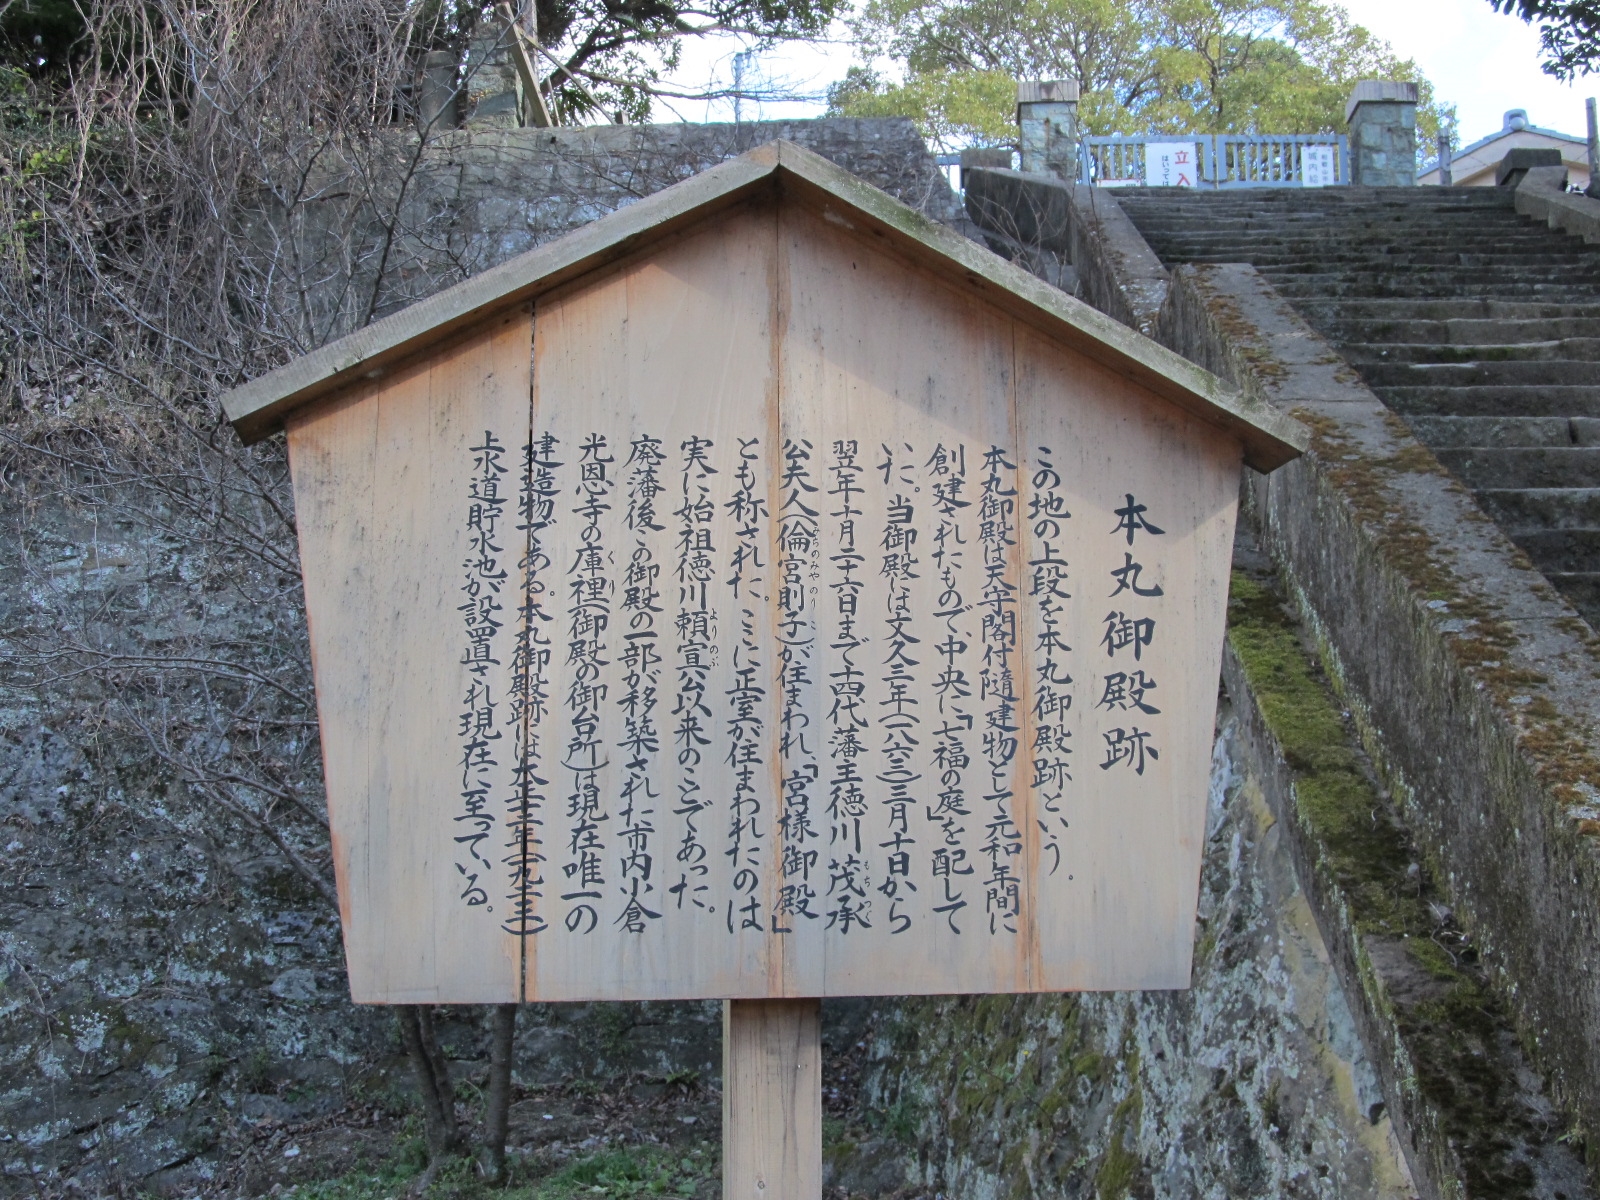 本丸御殿跡
この地の上段を本丸御殿跡という。
本丸御殿は天守閣付随建物として元和年間に
創建されたもので、中央に「七福の庭」を配して
いた。当御殿には文久三年(一八六三)三月十日から
翌年十月二十六日まで十四代藩主徳川茂承
もちつぐ
公夫人(倫宮則子)が住まわれ、「宮様御殿」
みちのみやのりこ
とも称された。ここに正室が住まわれたのは
実に始祖徳川頼宣公以来のことであった。
よりのぶ
廃藩後この御殿の一部が移築された市内小倉
光恩寺の庫裡(御殿の御台所)は現在唯一の
くり
建造物である。本丸御殿跡には大正十二年(一九二三)
上水道貯水池が設置され現在に至っている。
立入
はいっては
城内